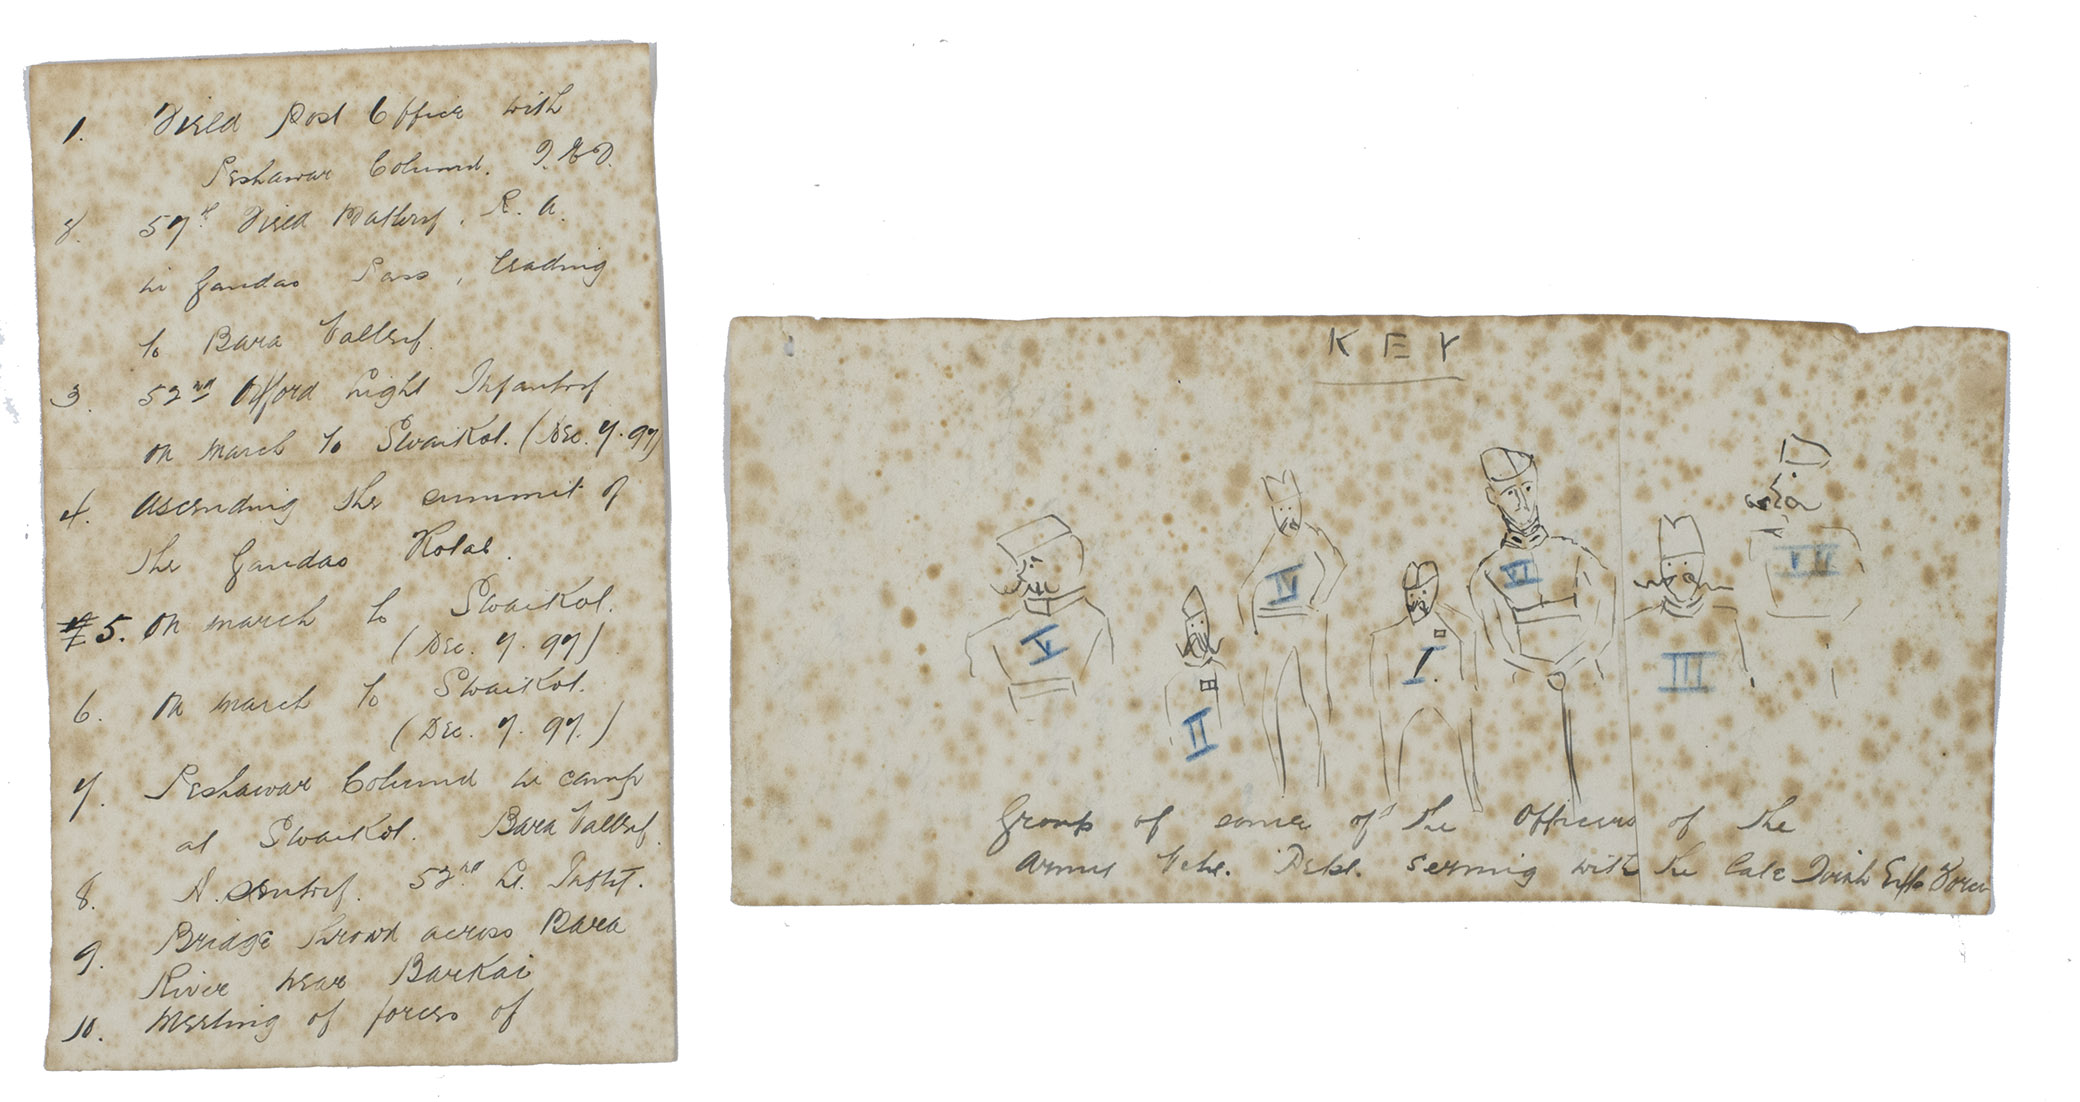 1. Field Post Office with
Peshawar Column. T.E.F.
2. 57th Field Battery, R. A.
in Gandao Pass, leading
to Bara Valley.
3. 52nd Oxford Light Infantry
on march to Swaikot. (Dec. 7. 97)
4. Ascending the summit of
the Gandao Kotal.
5. On march to Swaikot.
(Dec. 7. 97)
6. On march to Swaikot.
(Dec. 7. 97.)
7. Peshawar Column in camp
at Swaikot. Bara Valley.
8. A sentry. 52nd Lt. Inft.
9. Bridge thrown across Bara
River near Barkai
10. Meeting of forces of
KEY
V
II
IV
I.
VI
III
Group of some of the Officers of the
Army Vety. Dept. serving with the late Tirah Exp. Force